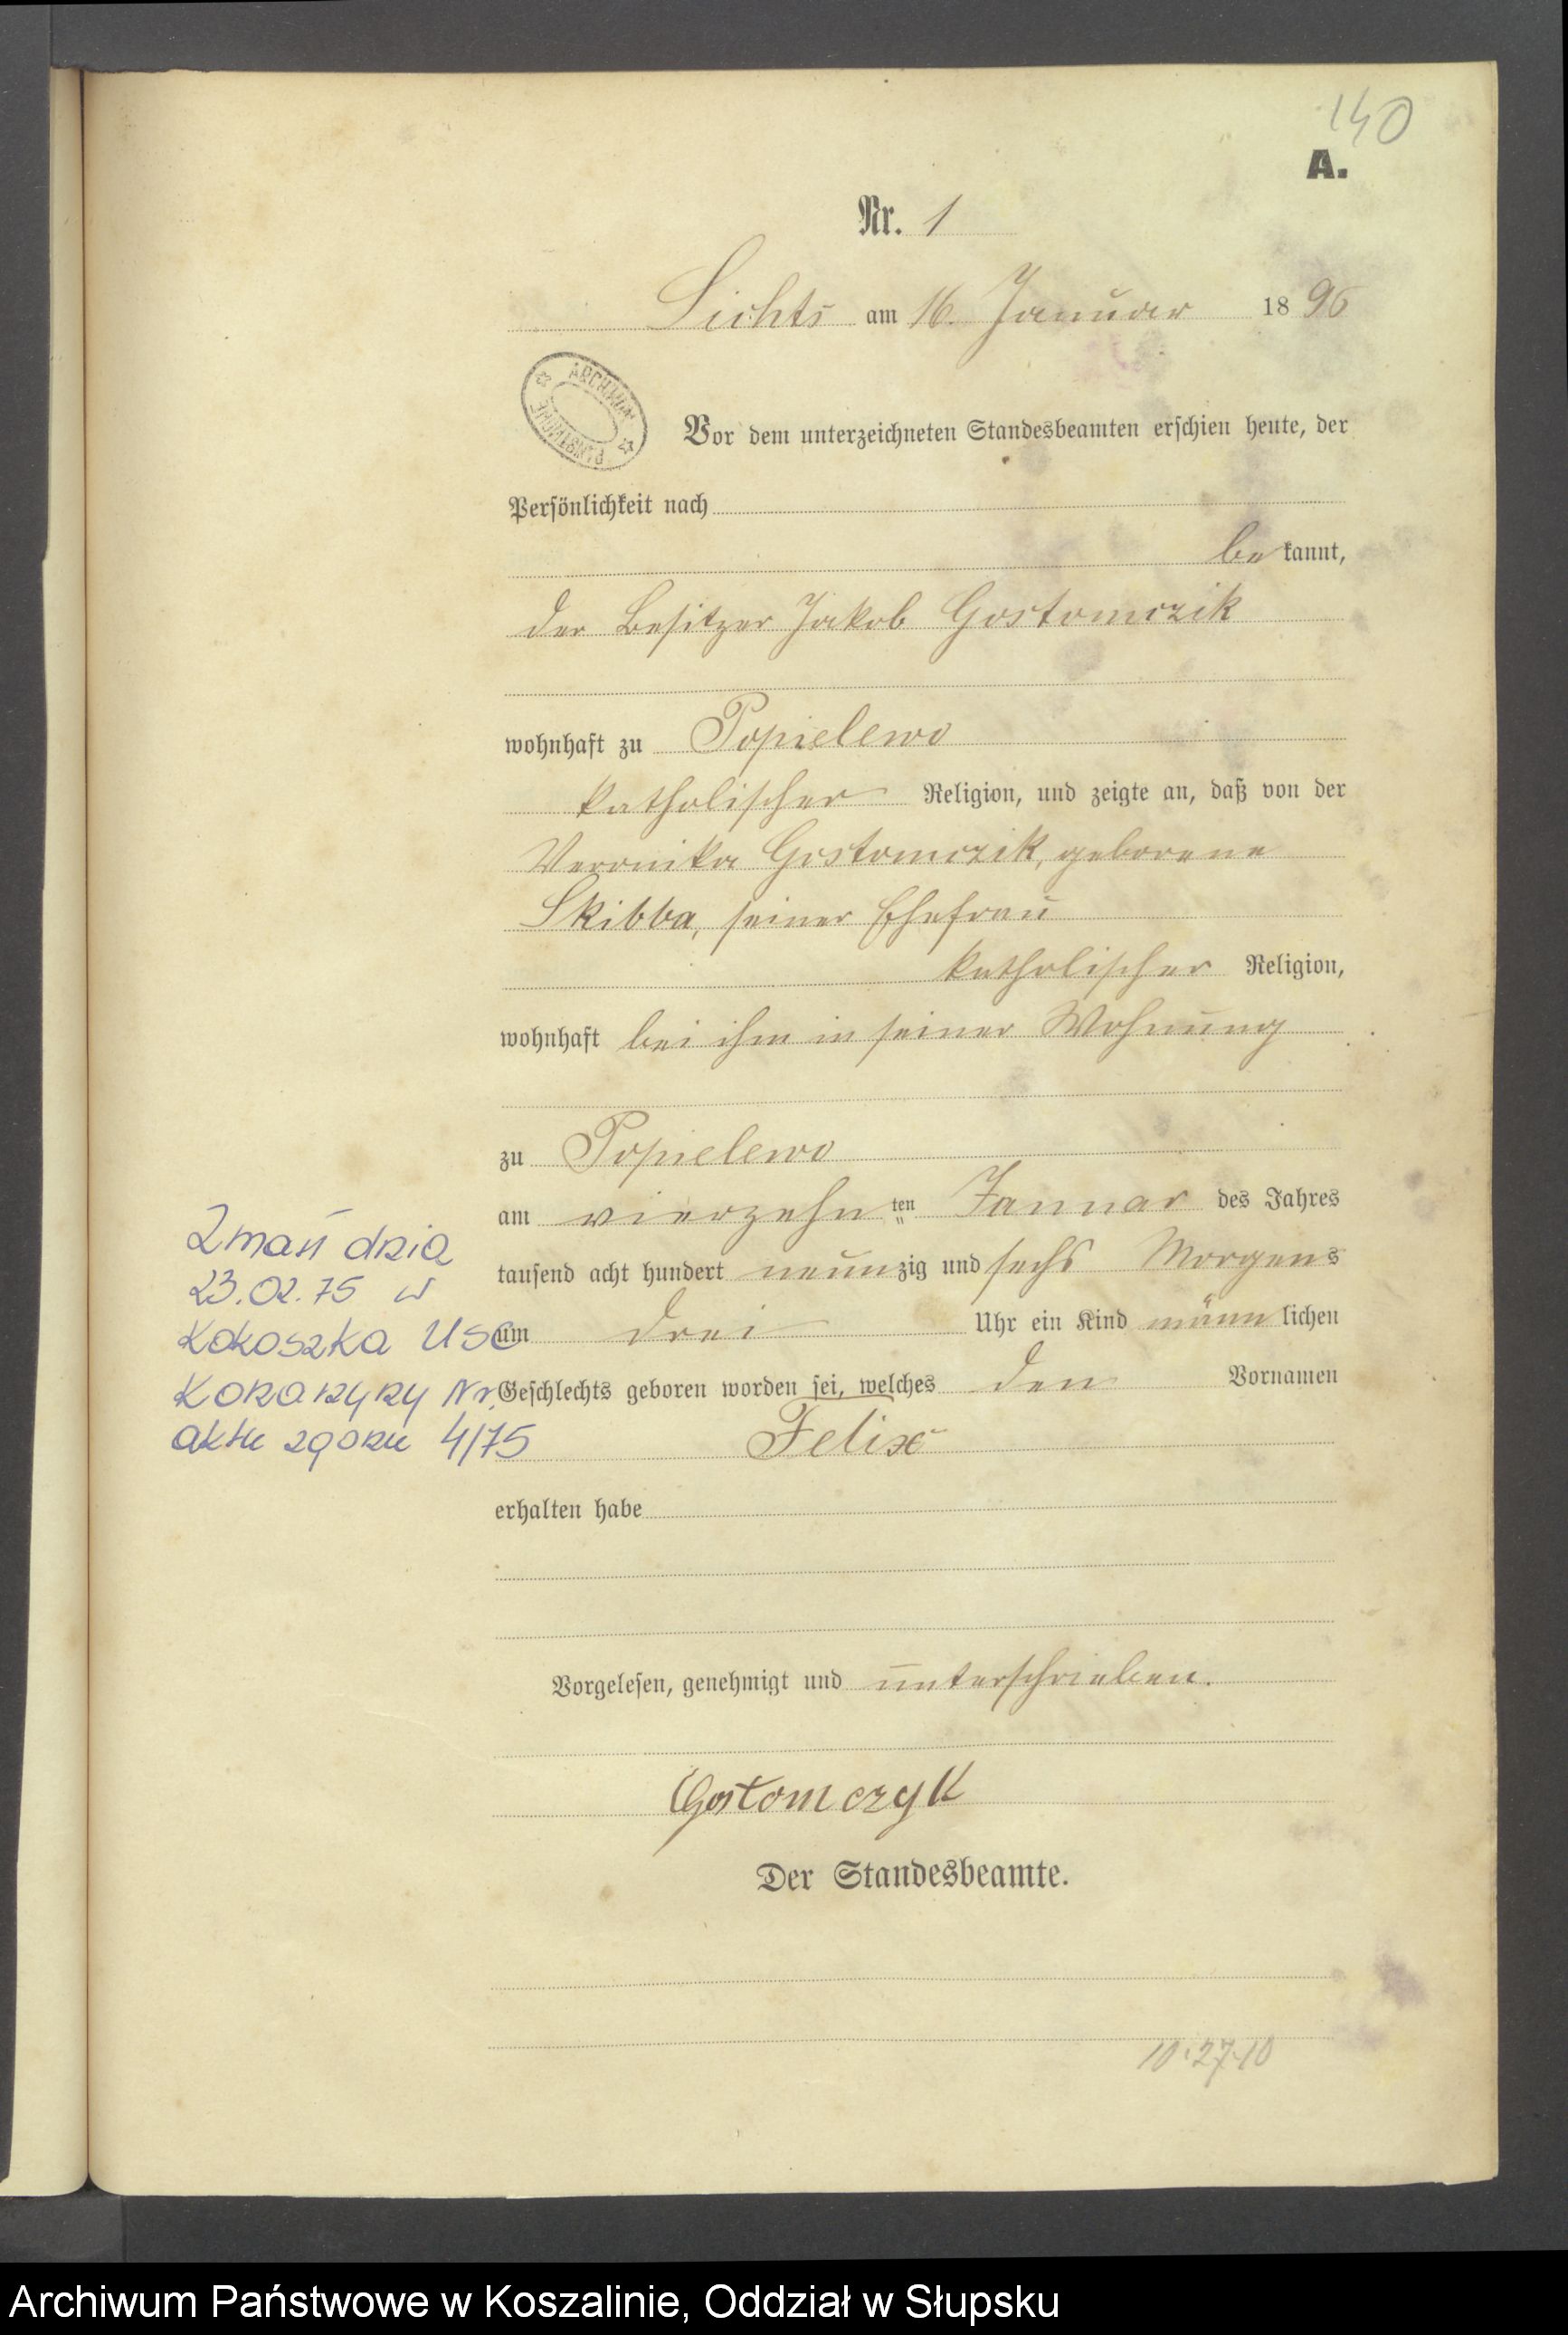 140
A.
Nr. 1
Lichts am 16. Januar 1896
ARCHIWUM PAŃSTWOWE
Vor dem unterzeichneten Standesbeamten erschien heute, der
Persönlichkeit nach
be kannt,
der Besitzer Jakob Gostomczik
wohnhaft zu Popielewo
katholischer Religion, und zeigte an, daß von der
Veronika Gostomczik, geborene
Skibba, seiner Ehefrau
katholischer Religion,
wohnhaft bei ihm in seiner Wohnung
zu Popielewo
am vierzehn ten Januar des Jahres
tausend acht hundert neunzig und sechs Morgens
um drei Uhr ein Kind männlichen
Geschlechts geboren worden sei, welches den Vornamen
Felix
erhalten habe
Zmarł dnia
23.02.75 w
Kokoszka USC
Nr.
aktu zgonu 4/75
Vorgelesen, genehmigt und unterschrieben.
Gostomczyk
Der Standesbeamte.
10.27.10
Archiwum Państwowe w Koszalinie, Oddział w Słupsku